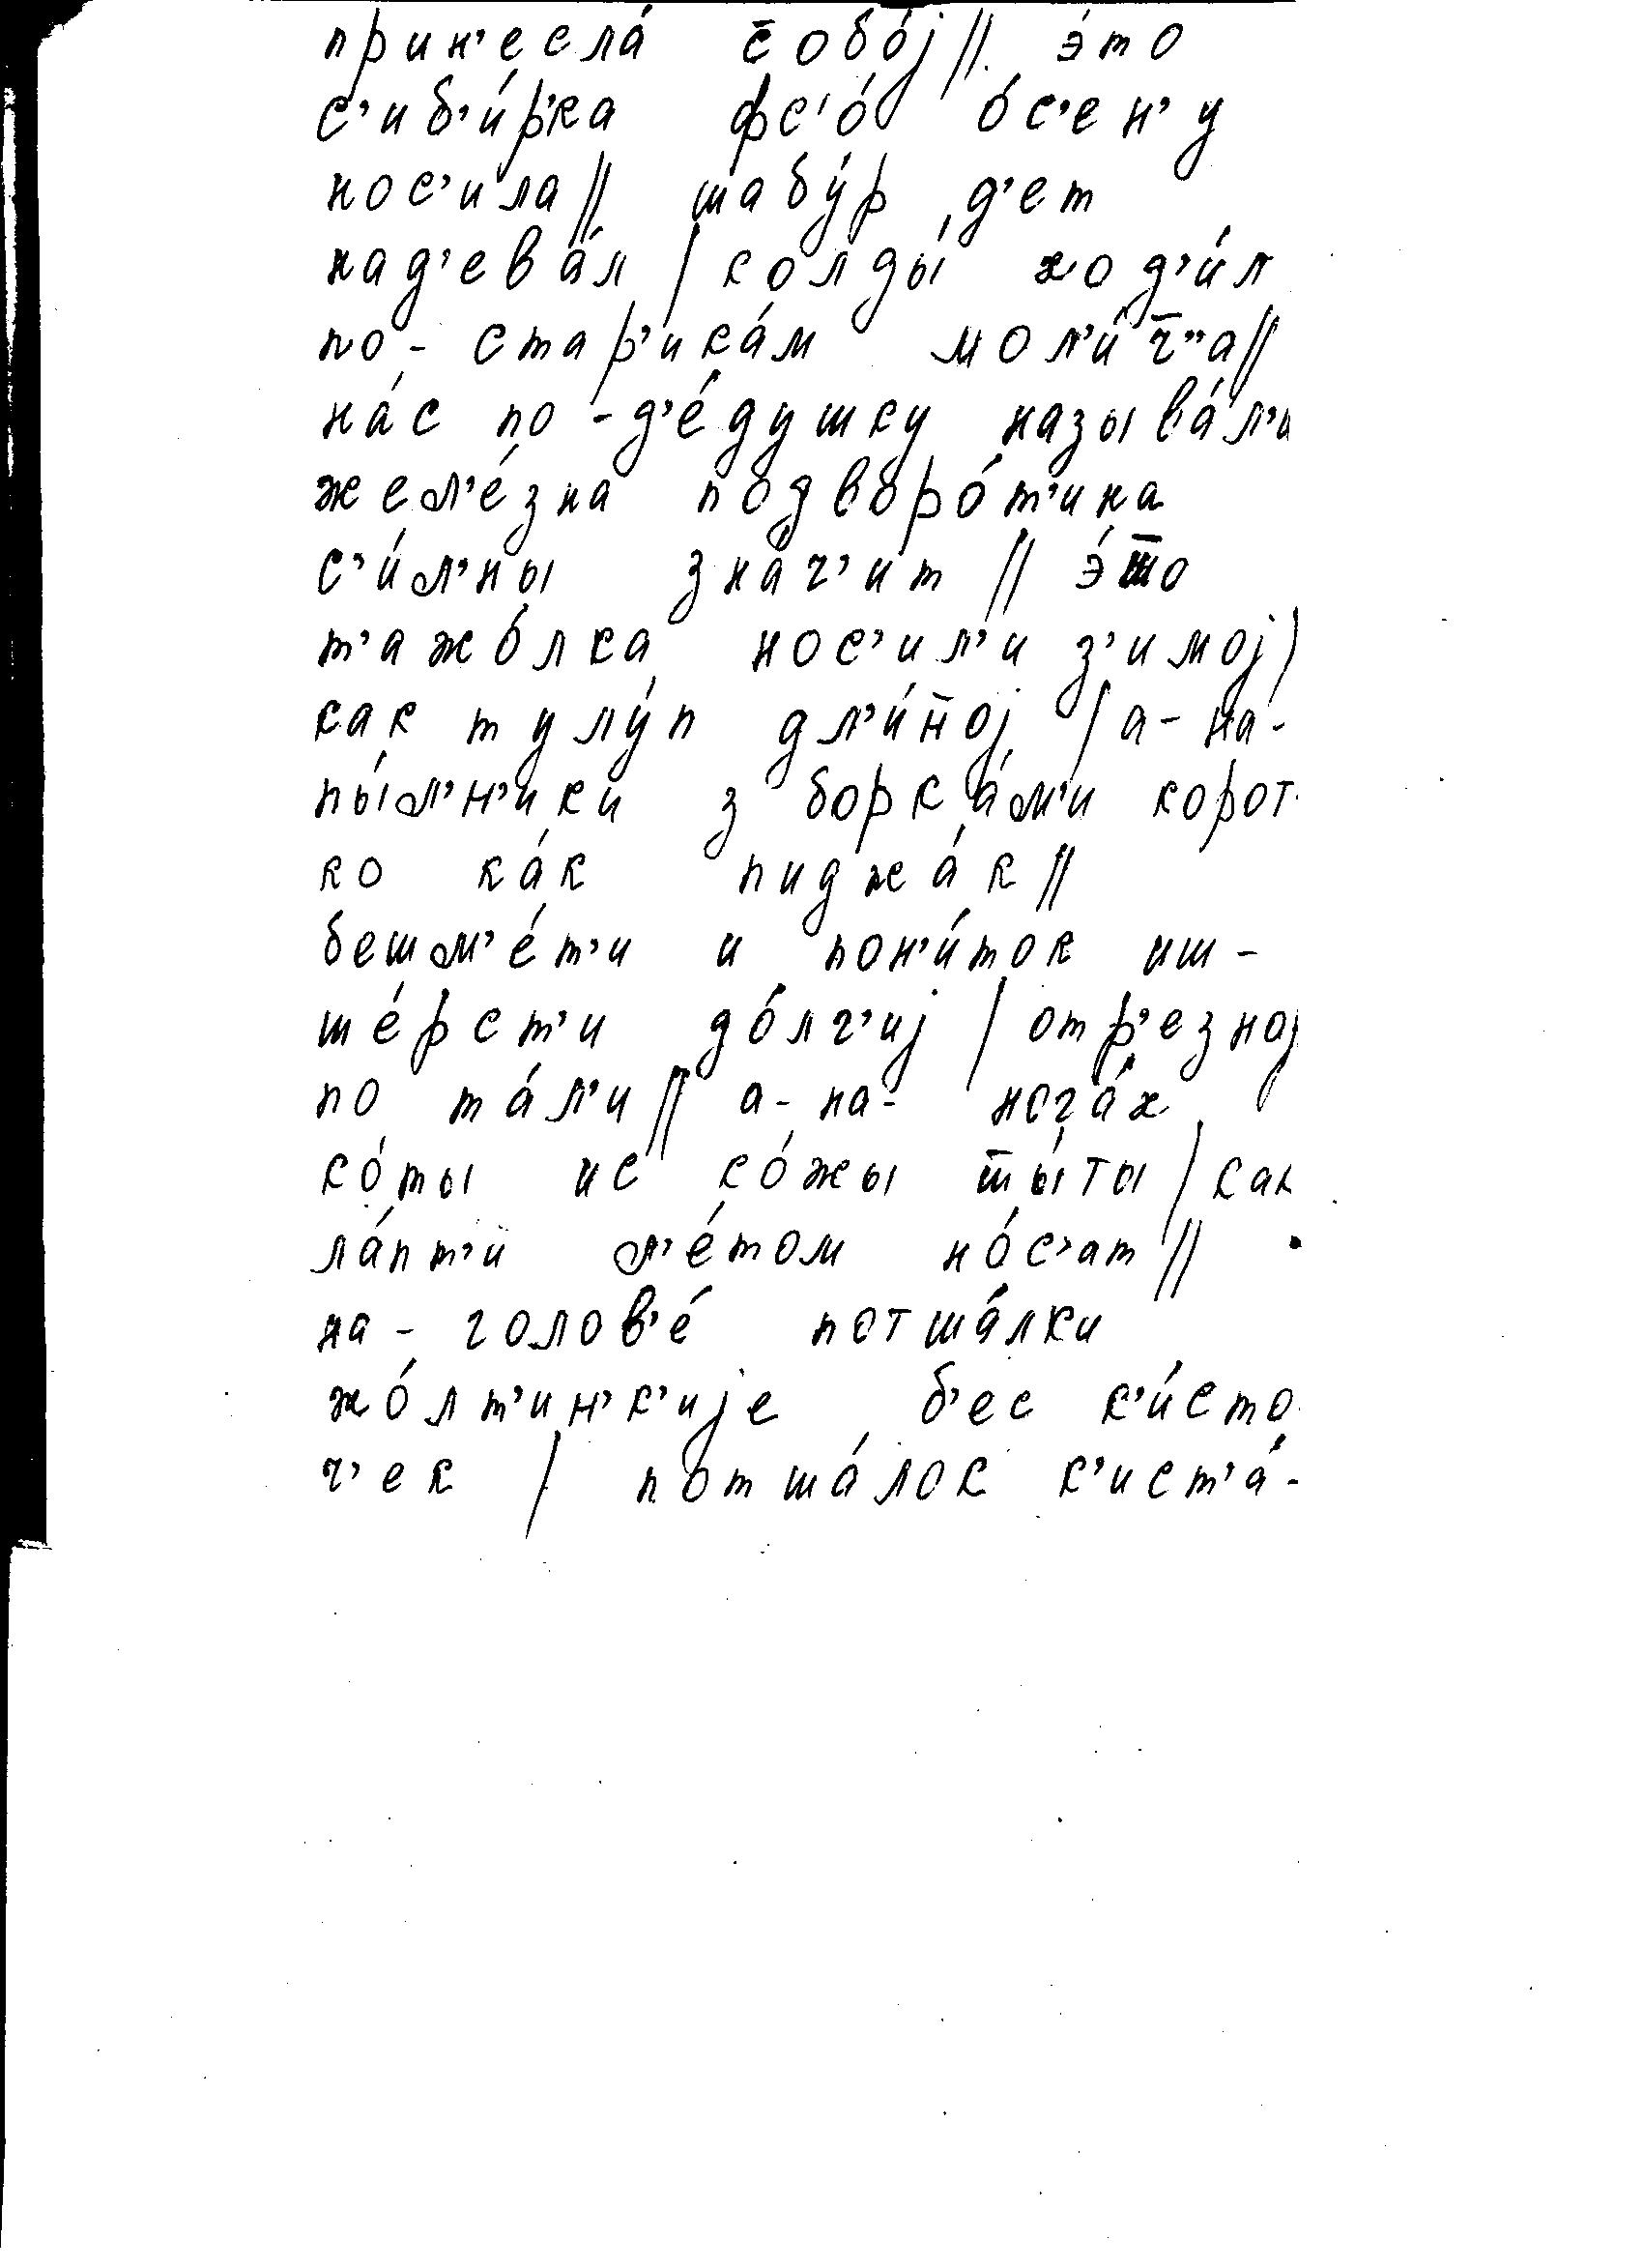 прин’есла́ с̄обо́j // э́то
с’иб’и́р’ка фс’о́ о́с’ен’у
нос’ила // шабу́р д’ет
над’ева́л / колды́ ход’и́л
по- стар’ика́м мол’и́ч̄’’а //
на́с по -д’е́душку называ́л’и
жел’е́зна подворо́т’ина
с’и́л’ны зна́ч’ит // э́то
т’ажо́лка нос’ил’и з’имоj /
как тулу́п дл’и́н̄оj / а- на-
пы́л’н’ики з борка́м’и корот-
ко ка́к пиджа́к //
бешм’е́т’и и пон’и́ток иш -
ше́рст’и до́лг’иj / отр’езноj
по та́л’и // а- на- нога́х
ко́ты ис ко́жы шы́ты / как
ла́пт’и л’е́том но́с’ат //
на - голов’е́ потша́лки
жо́лт’ин’к’иjе б’ес к’и́сто
ч’ек / потша́лок к’ист’а́-